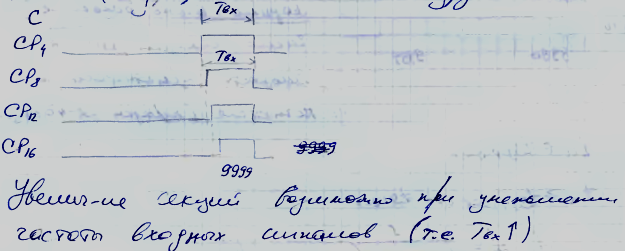 C
Tвх
CP4
Tвх
CP8
CP12
CP16
9999
9999
Увелич-ие секций возможно при уменьшении
частоты входных сигналов (т.е Tвх↑)